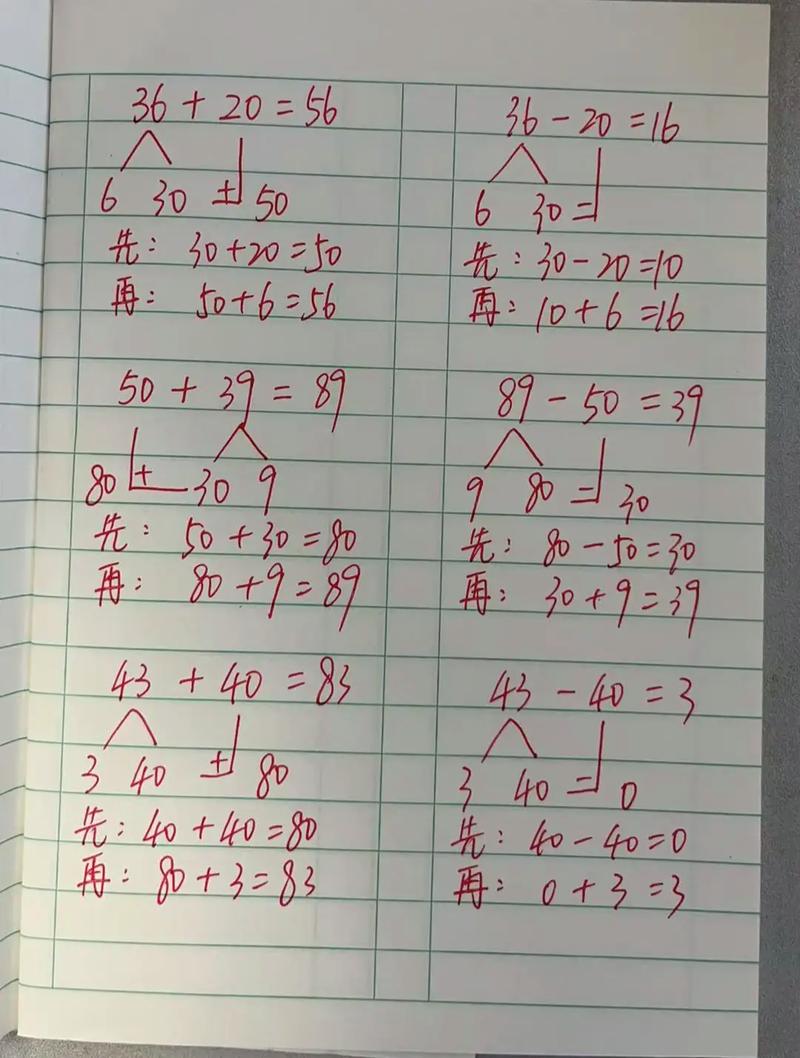 36 + 20 = 56
6 30 + 50
先: 30 + 20 = 50
再: 50 + 6 = 56
50 + 39 = 89
80 + 30 9
先: 50 + 30 = 80
再: 80 + 9 = 89
43 + 40 = 83
3 40 + 80
先: 40 + 40 = 80
再: 80 + 3 = 83
36 - 20 = 16
6 30 -
先: 30 - 20 = 10
再: 10 + 6 = 16
89 - 50 = 39
9 80 - 30
先: 80 - 50 = 30
再: 30 + 9 = 39
43 - 40 = 3
3 40 - 0
先: 40 - 40 = 0
再: 0 + 3 = 3